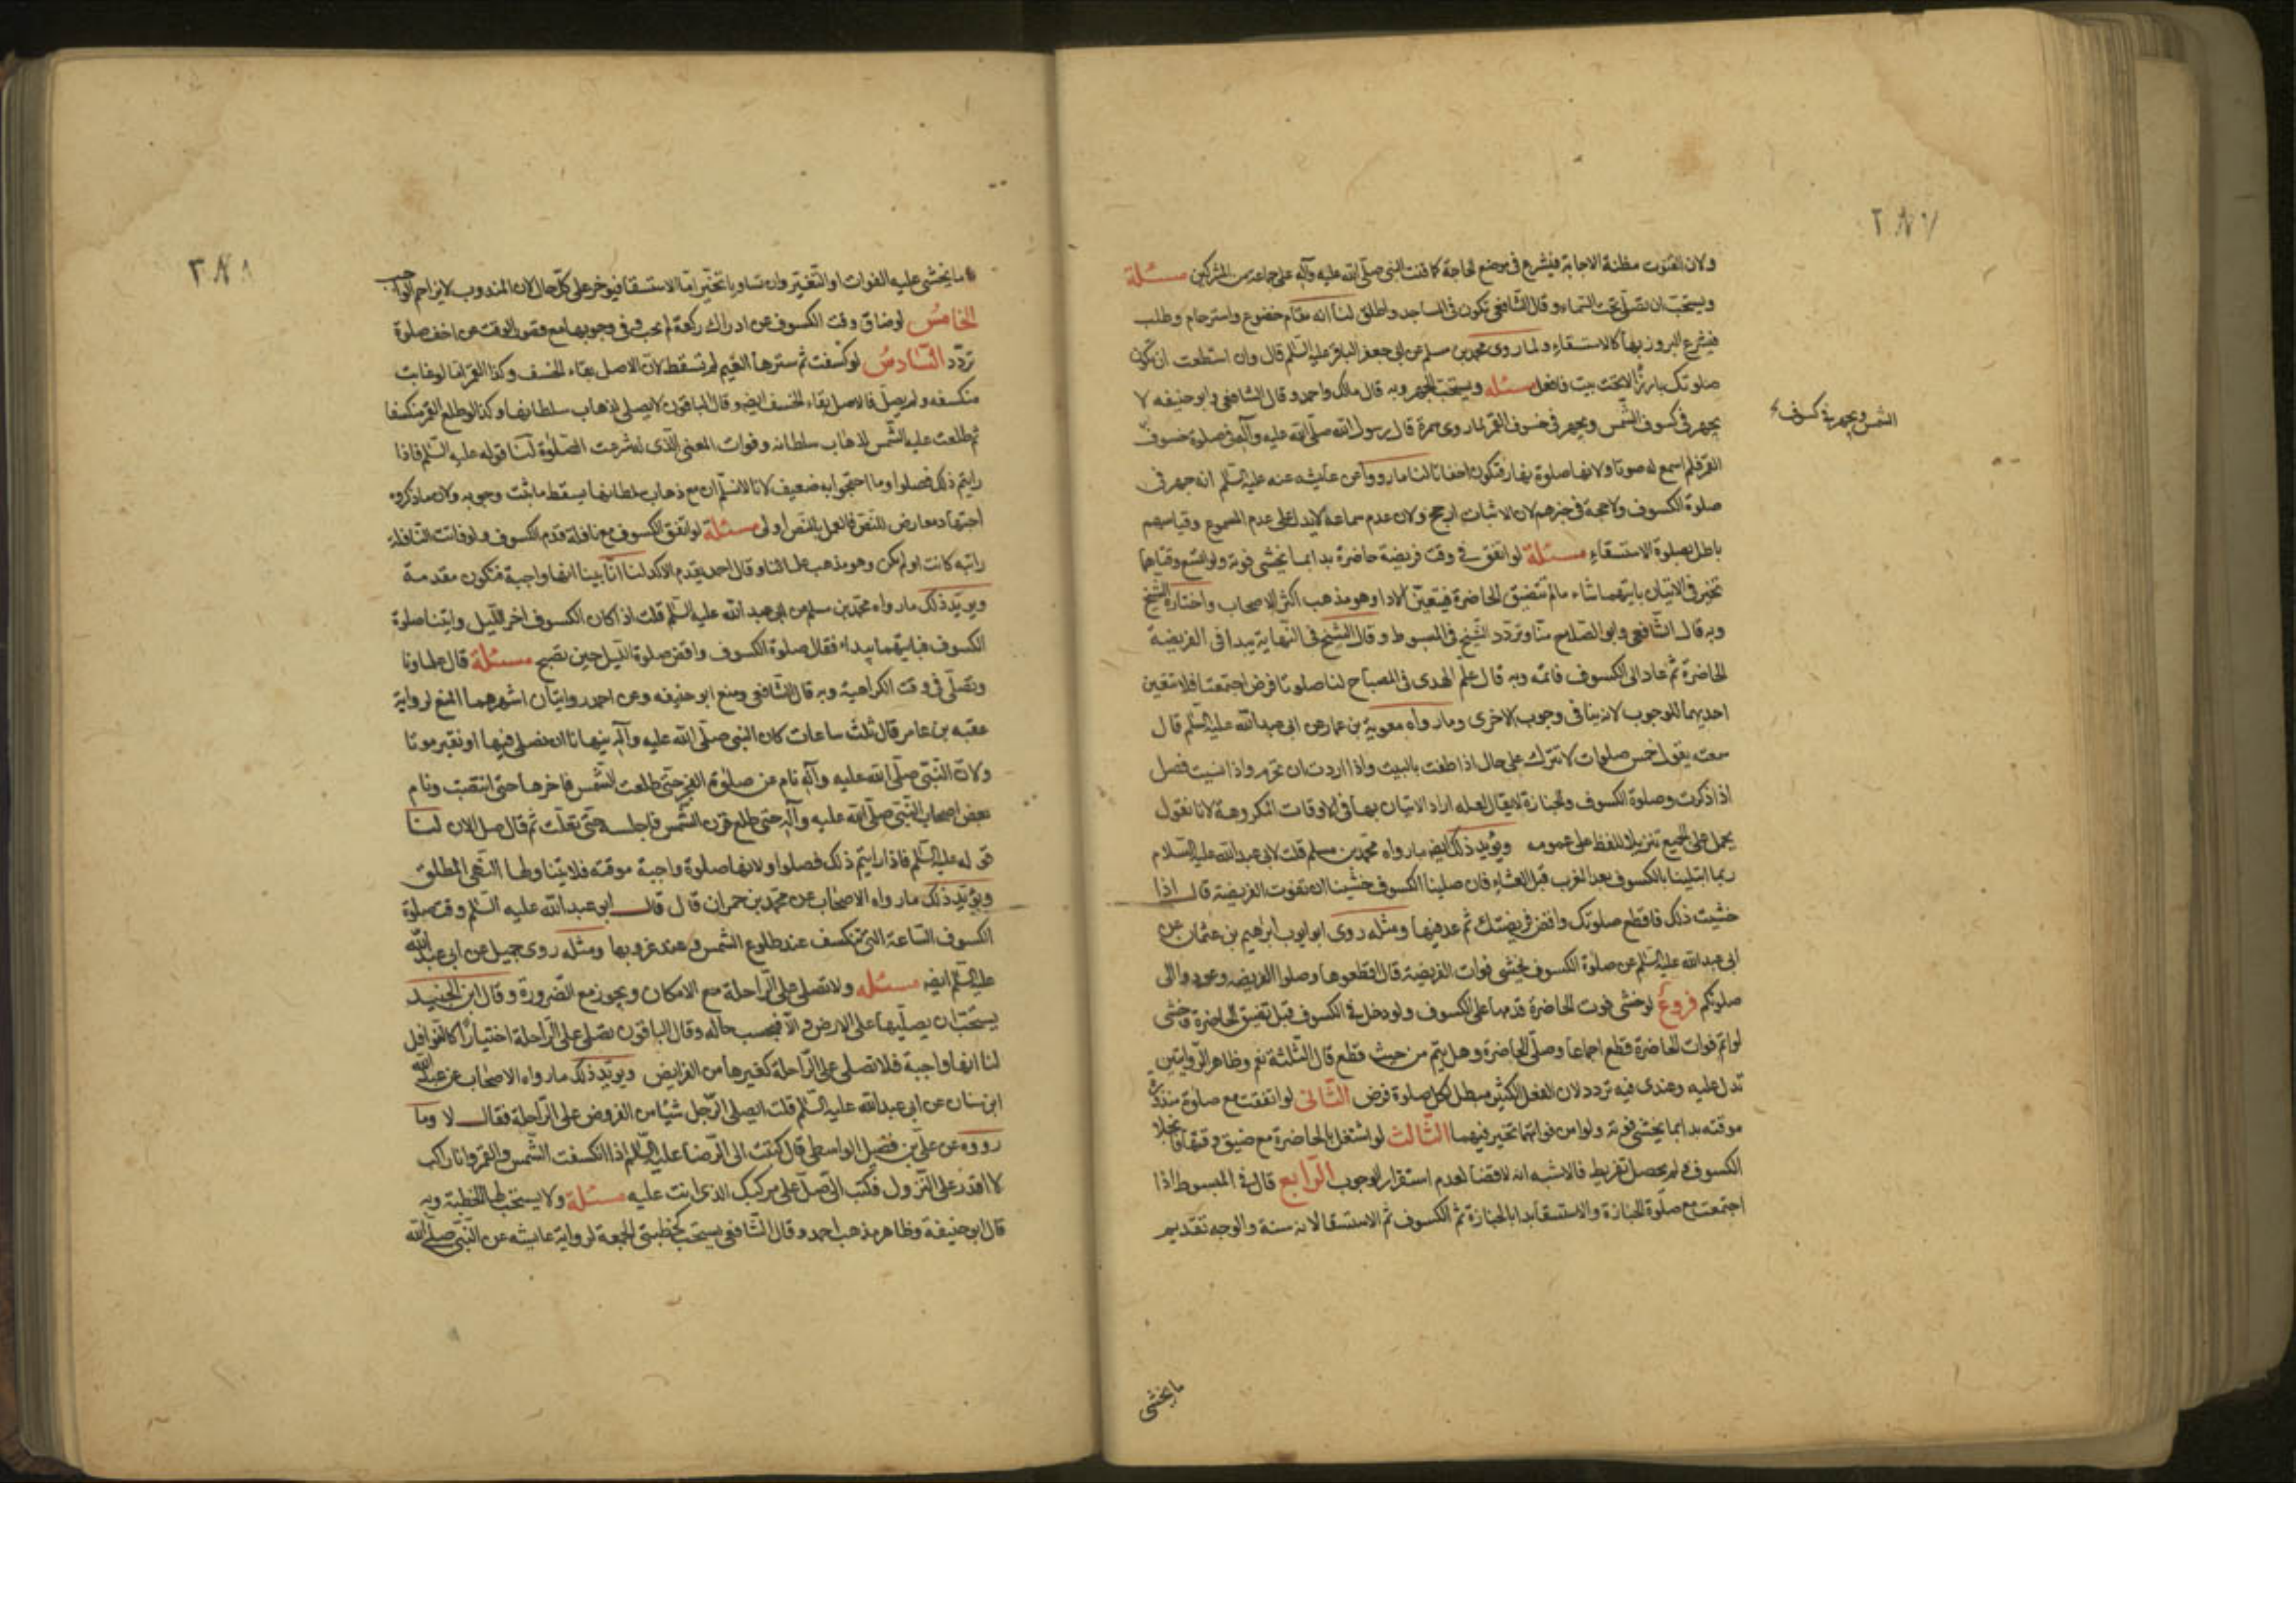 ٢٨٧
ولان القنوت مظنة الاجابة فيشرع في موضع الحاجة كما قنت النبي صلّى الله عليه وآله على جماعة من المشركين مسئلة
ويستحب ان تصلّى تحت السماء وقال الشافعي تكون في المساجد واطلق لنا انه مقام خضوع واسترحام وطلب
فيشرع البروز بها كالاستسقاء ولما روى محمد بن مسلم عن ابي جعفر الباقر عليه السّلم قال وان استطعت ان تكون
صلوتك بارزًا لا تحت بيت فافعل مسئله ويستحب الجهر وبه قال مالك واحمد وقال الشافعي وابو حنيفه لا
يجهر في كسوف الشّمس ويجهر في خسوف القمر لما روى سمرة قال رسول الله صلّى الله عليه وآله في صلوة خسوف
الشمس ويجهر في كسوف
القمر فلم اسمع له صوتا ولانها صلوة نهار فتكون اخفاتا لنا ما رووا عن عايشه عنه عليه السّلم انه جهر في
صلوة الكسوف ولا حجة في خبرهم لان الاثبات ارجح ولان عدم سماعه لا يدل على عدم المسموع وقياسهم
باطل بصلوة الاستسقاء مسئلة لو اتفق في وقت فريضة حاضرة بدا بما يخشى فوته ولو اتسع وقتاهما
تخير في الاتيان بايتهما شاء ما لم تتضيق الحاضرة فيتعين الادا وهو مذهب اكثر الاصحاب واختاره الشيخ
وبه قال الشّافعي وابو الصّلاح منّا وتردّد الشّيخ في المبسوط وقال الشّيخ في النّهاية يبدا في الفريضة
الحاضرة ثم عاد الى الكسوف فاتمّه وبه قال علم الهدى في المصباح لنا صلوتا فرض اجتمعتا فلا تتعين
احديهما للوجوب لانه ينافي وجوب الاخرى وما رواه معوية بن عمار عن ابي عبد الله عليه السّلم قال
سمعته يقول خمس صلوات لا تترك على حال اذا طفت بالبيت واذا اردت ان تحرم واذا نسيت فصل
اذا ذكرت وصلوة الكسوف والجنازة لا يقال لعله اراد الاتيان بها في الاوقات المكروهة لانا نقول
يحمل على الجميع تنزيلا للفظ على عمومه ويؤيد ذلك ايضا ما رواه محمّد بن مسلم قلت لابي عبد الله عليه السّلام
ربما ابتلينا بالكسوف بعد المغرب قبل العشاء فان صلينا الكسوف خشينا ان تفوت الفريضة قال اذا
خشيت ذلك فاقطع صلوتك واقض فريضتك ثم عد فيها ومثله روى ابو ايوب ابرهيم بن عثمان عن
ابي عبد الله عليه السّلم عن صلوة الكسوف يخشى فوات الفريضة قال اقطعوها وصلوا الفريضه وعودوا الى
صلوتكم فروع لو خشى فوت الحاضرة قدمها على الكسوف ولو دخل في الكسوف قبل تضيق الحاضرة وخشى
لو اتم فوات الحاضرة قطع اجماعا وصلّى الحاضرة وهل يتم من حيث قطع قال الثلثة نعم وظاهر الرّوايتين
تدل عليه وعندى فيه تردد لان الفعل الكثير مبطل لكل صلوة فرض الثّانى لو اتفقت مع صلوة منذورة
موقته بدا بما يخشى فوته ولو امن فواتهما تخير فيهما الثّالث لو اشتغل بالحاضرة مع ضيق وقتها فانجلا
الكسوف ولم يحصل تفريط فالاشبه انه لا قضا لعدم استقرار الوجوب الرّابع قال في المبسوط اذا
اجتمعت مع صلوة الجنازة والاستسقا بدا بالجنازة ثم الكسوف ثم الاستسقا لانه سنة والوجه تقديم
ما يخشى
٢٨٨
ما يخشى عليه الفوات او التّغيّر وان تساويا تخيّر امّا الاستسقا فيؤخر على كلّ حال لان المندوب لا يزاحم الواجب
الخامسُ لو ضاق وقت الكسوف عن ادراك ركعة لم تجب وفي وجوبها مع قصور الوقت عن اخف صلوة
تردّد السّادسُ لو كُسفت ثم سترها الغيم لم تسقط لانّ الاصل بقاء الخسف وكذا القمر امّا لو غابت
منكسفه ولم يصلّ فالاصل بقاء الخسف ايضا وقال الباقون لا يصلى لذهاب سلطانها وكذا لو طلع القمر منكسفا
ثم طلعت عليه الشّمس لذهاب سلطانه وفوات المعنى الّذى له شرعت الصّلوة لنا قوله عليه السّلم فاذا
رايتم ذلك فصلوا وما احتجوا به ضعيف لانا لا نسلّم ان مع ذهاب سلطانها يسقط ما ثبت وجوبه ولان ما ذكروه
اجتهاد معارض للنّصّ فالعمل بالنّص اولى مسئلة لو اتفق الكسوف مع نافلة قدم الكسوف ولو فاتت النّافلة
راتبه كانت او لم تكن وهو مذهب علمائنا وقال احمد يقدم الاكد لنا انّا بينا انها واجبة فتكون مقدمة
ويويّد ذلك ما رواه محمّد بن مسلم عن ابي عبد الله عليه السّلم قلت اذا كان الكسوف اخر اللّيل وابتنا صلوة
الكسوف فبايّتهما يبداء فقال صلوة الكسوف واقض صلوة اللّيل حين تصبح مسئلة قال علماونا
وتصلّى في وقت الكراهية وبه قال الشّافعي ومنع ابو حنيفه وعن احمد روايتان اشهرهما المنع لرواية
عقبه بن عامر قال ثلث ساعات كان النّبي صلّى الله عليه وآله ينهانا ان نصلى فيها او نقبر موتا
ولانّ النّبيّ صلّى الله عليه وآله نام عن صلوة الفجر حتى طلعت الشّمس فاخرها حتى انتصبت ونام
بعض اصحاب النّبيّ صلّى الله عليه وآله حتى طلع قرن الشّمس فاجلسه حتّى تعلّت ثم قال صل الان لنا
قوله عليه السّلم فاذا رايتم ذلك فصلوا ولانها صلوة واجبة موقته فلا يتناولها النّهى المطلق
ويؤيّد ذلك ما رواه الاصحاب عن محمّد بن حمران قال قال ابو عبد الله عليه السّلم وقت صلوة
الكسوف السّاعة الّتي تنكسف عند طلوع الشمس وعند غروبها ومثله روى جميل عن ابي عبد الله
عليه السّلم ايضا مسئله ولا تصلى على الرّاحلة مع الامكان ويجوز مع الضّرورة وقال ابن الجنيد
يستحبّ ان يصلّيها على الارض والّا فبحسب حاله وقال الباقون تصلى على الرّاحلة اختيارًا كالنّوافل
لنا انها واجبة فلا تصلى على الرّاحلة كغيرها من الفرايض ويويّد ذلك ما رواه الاصحاب عن عبد الله
ابن سنان عن ابي عبد الله عليه السّلم قلت ايصلى الرّجل شيئا من الفروض على الرّاحلة فقال لا وما
رووه عن علي بن فضيل الواسطي قال كتبت الى الرّضا عليه السّلم اذا انكسفت الشّمس والقمر وانا راكب
لا اقدر على النّزول فكتب الىّ صلّ على مركبك الذى انت عليه مسئلة ولا يستحبّ لها الخطبة وبه
قال ابو حنيفة وظاهر مذهب احمد وقال الشّافعي يستحب كخطبتي الجمعة لرواية عايشه عن النّبيّ صلّى الله